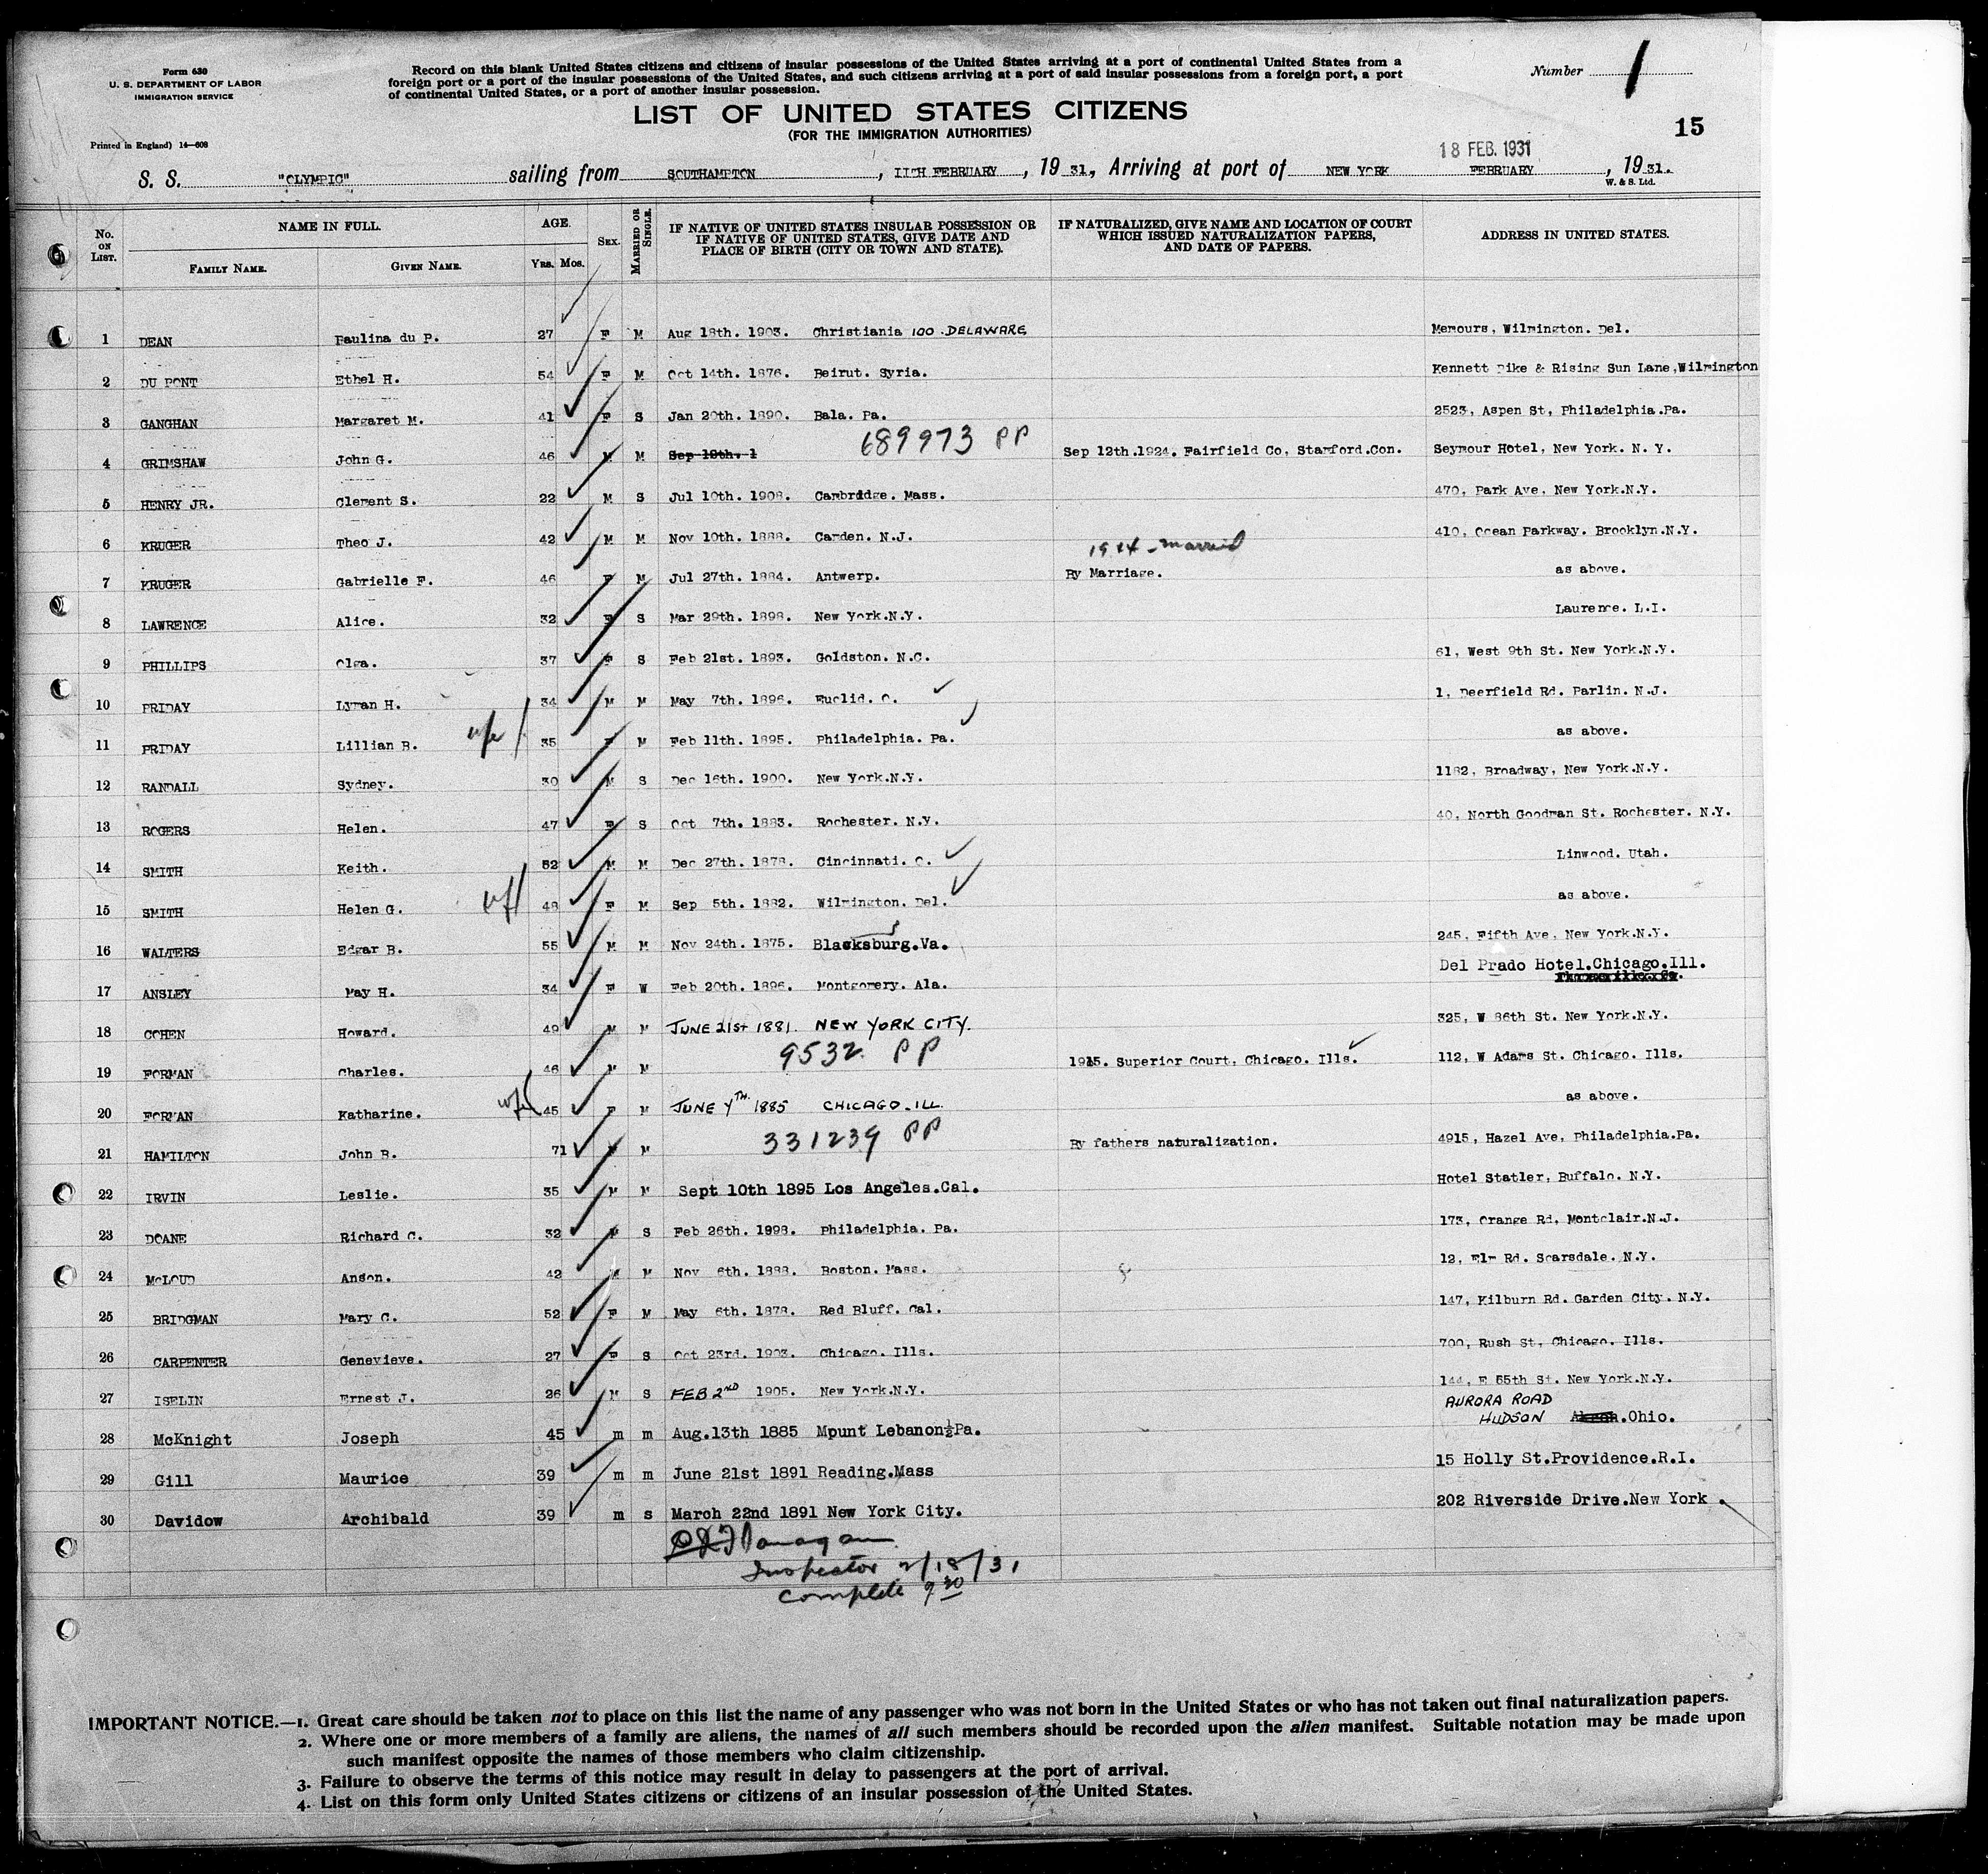 Form 630
U. S. DEPARTMENT OF LABOR
IMMIGRATION SERVICE
Printed in England) 14—608
Record on this blank United States citizens and citizens of insular possessions of the United States arriving at a port of continental United States from a
foreign port or a port of the insular possessions of the United States, and such citizens arriving at a port of said insular possessions from a foreign port, a port
of continental United States, or a port of another insular possession.
Number 1
LIST OF UNITED STATES CITIZENS
(FOR THE IMMIGRATION AUTHORITIES)
15
18 FEB. 1931
S. S. "OLYMPIC" sailing from SOUTHAMPTON, 11TH FEBRUARY, 1931, Arriving at port of NEW YORK FEBRUARY, 1931.
W. & S. Ltd.
No. ON LIST. NAME IN FULL. FAMILY NAME. GIVEN NAME. AGE. YRS. MOS. SEX. MARRIED OR SINGLE. IF NATIVE OF UNITED STATES INSULAR POSSESSION OR IF NATIVE OF UNITED STATES, GIVE DATE AND PLACE OF BIRTH (CITY OR TOWN AND STATE). IF NATURALIZED, GIVE NAME AND LOCATION OF COURT WHICH ISSUED NATURALIZATION PAPERS, AND DATE OF PAPERS. ADDRESS IN UNITED STATES.
1 DEAN Paulina du P. 27 F M Aug 18th. 1903. Christiania 100 . DELAWARE Memours, Wilmington. Del.
2 DU PONT Ethel H. 54 F M Oct 14th. 1876. Beirut. Syria. Kennett Pike & Rising Sun Lane,Wilmington
3 GANGHAN Margaret M. 41 F S Jan 20th. 1890. Bala. Pa. 2523, Aspen St, Philadelphia.Pa.
689973 PP
4 GRIMSHAW John G. 46 M M Sep 12th.1924. Fairfield Co, Stamford.Con. Seymour Hotel, New York. N. Y.
5 HENRY JR. Clement S. 22 M S Jul 10th. 1908. Cambridge. Mass. 470, Park Ave, New York.N.Y.
6 KRUGER Theo J. 42 M M Nov 10th. 1888. Camden. N.J. 410, Ocean Parkway. Brooklyn.N.Y.
married
7 KRUGER Gabrielle F. 46 F M Jul 27th. 1884. Antwerp. By Marriage. as above.
8 LAWRENCE Alice. 32 F S Mar 29th. 1898. New York.N.Y. Laurence. L.I.
9 PHILLIPS Olga. 37 F S Feb 21st. 1893. Goldston. N.C. 61, West 9th St. New York.N.Y.
10 PRIDAY Lyman H. 34 M M May 7th. 1896. Euclid. O. 1, Deerfield Rd. Parlin. N.J.
11 PRIDAY Lillian B. wife 35 F M Feb 11th. 1895. Philadelphia. Pa. as above.
12 RANDALL Sydney. 30 M S Dec 16th. 1900. New York.N.Y. 1182, Broadway, New York.N.Y.
13 ROGERS Helen. 47 F S Oct 7th. 1883. Rochester. N.Y. 40, North Goodman St. Rochester. N.Y.
14 SMITH Keith. 52 M M Dec 27th. 1878. Cincinnati. O. Linwood. Utah.
15 SMITH Helen G. wf 48 F M Sep 5th. 1882. Wilmington. Del. as above.
16 WALTERS Edgar B. 55 M M Nov 24th. 1875. Blacksburg.Va. 245, Fifth Ave, New York.N.Y.
17 ANSLEY May H. 34 F W Feb 20th. 1896. Montgomery. Ala. Del Prado Hotel.Chicago.Ill.
18 COHEN Howard. 49 M M JUNE 21ST 1881. NEW YORK CITY. 325, W 86th St. New York.N.Y.
9532 PP
19 FORMAN Charles. 46 M M 1915. Superior Court, Chicago. Ills. 112, W Adams St. Chicago. Ills.
20 FORMAN Katharine. wife 45 F M JUNE 7TH 1885 CHICAGO. ILL. as above.
331239 PP
21 HAMILTON John B. 71 M M By fathers naturalization. 4915, Hazel Ave, Philadelphia.Pa.
22 IRVIN Leslie. 35 M M Sept 10th 1895 Los Angeles.Cal. Hotel Statler, Buffalo. N.Y.
23 DOANE Richard C. 32 M S Feb 26th. 1998. Philadelphia. Pa. 173, Orange Rd, Montclair.N.J.
24 McLOUD Anson. 42 M M Nov 6th. 1888. Boston. Mass. 12, Elm Rd. Scarsdale. N.Y.
25 BRIDGMAN Mary C. 52 F M May 6th. 1878. Red Bluff. Cal. 147, Kilburn Rd. Garden City. N.Y.
26 CARPENTER Genevieve. 27 F S Oct 23rd. 1903. Chicago. Ills. 700, Rush St, Chicago. Ills.
27 ISELIN Ernest J. 26 M S FEB 2ND 1905. New York.N.Y. 144, E 65th St. New York.N.Y.
AURORA ROAD
28 McKnight Joseph 45 m m Aug.13th 1885 Mpunt Lebanon½Pa. HUDSON Akron.Ohio.
29 Gill Maurice 39 m m June 21st 1891 Reading.Mass 15 Holly St.Providence.R.I.
30 Davidow Archibald 39 m s March 22nd 1891 New York City. 202 Riverside Drive.New York.
Inspector 2/18/31
Complete 9 30
IMPORTANT NOTICE.—1. Great care should be taken not to place on this list the name of any passenger who was not born in the United States or who has not taken out final naturalization papers.
2. Where one or more members of a family are aliens, the names of all such members should be recorded upon the alien manifest. Suitable notation may be made upon
such manifest opposite the names of those members who claim citizenship.
3. Failure to observe the terms of this notice may result in delay to passengers at the port of arrival.
4. List on this form only United States citizens or citizens of an insular possession of the United States.